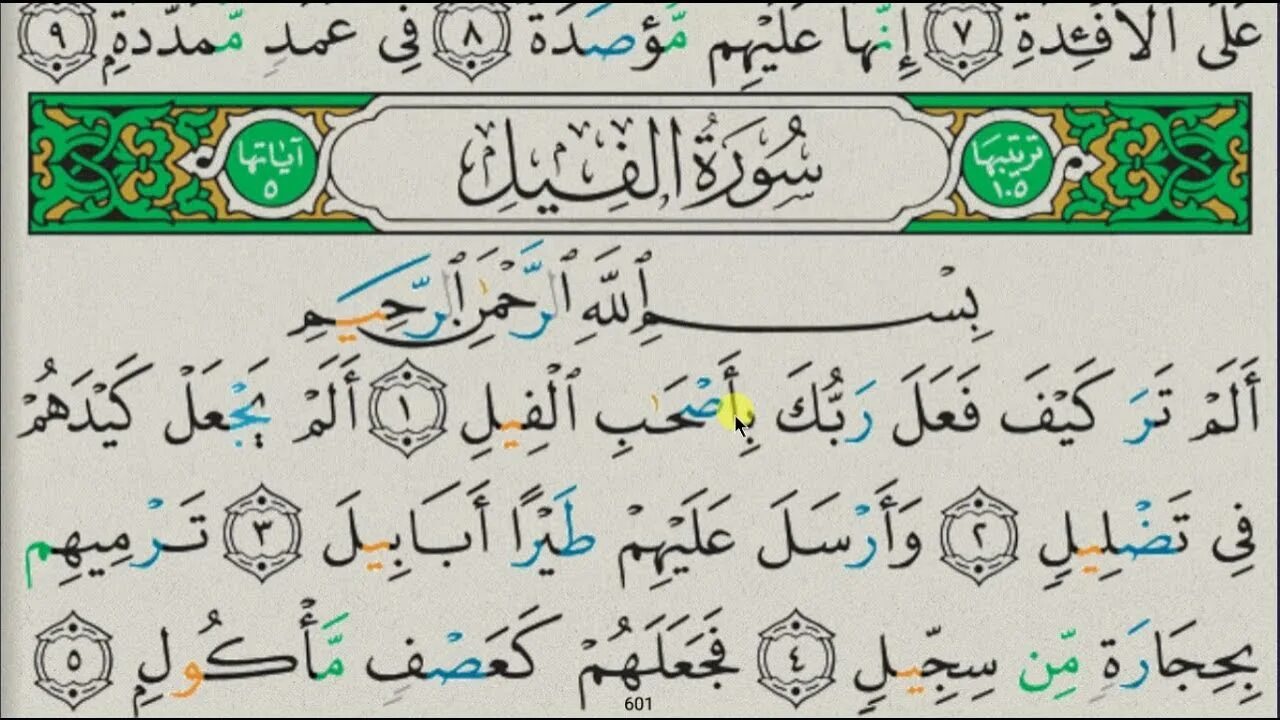 عَلَى الْأَفْئِدَةِ ٧ إِنَّهَا عَلَيْهِم مُّؤْصَدَةٌ ٨ فِي عَمَدٍ مُّمَدَّدَةٍ ٩
ترتيبها ١٠٥ سُورَةُ الفِيلِ آياتها ٥
بِسْمِ ٱللَّهِ ٱلرَّحْمَٰنِ ٱلرَّحِيمِ
أَلَمْ تَرَ كَيْفَ فَعَلَ رَبُّكَ بِأَصْحَٰبِ ٱلْفِيلِ ١ أَلَمْ يَجْعَلْ كَيْدَهُمْ
فِي تَضْلِيلٍ ٢ وَأَرْسَلَ عَلَيْهِمْ طَيْرًا أَبَابِيلَ ٣ تَرْمِيهِم
بِحِجَارَةٍ مِّن سِجِّيلٍ ٤ فَجَعَلَهُمْ كَعَصْفٍ مَّأْكُولٍ ٥
601